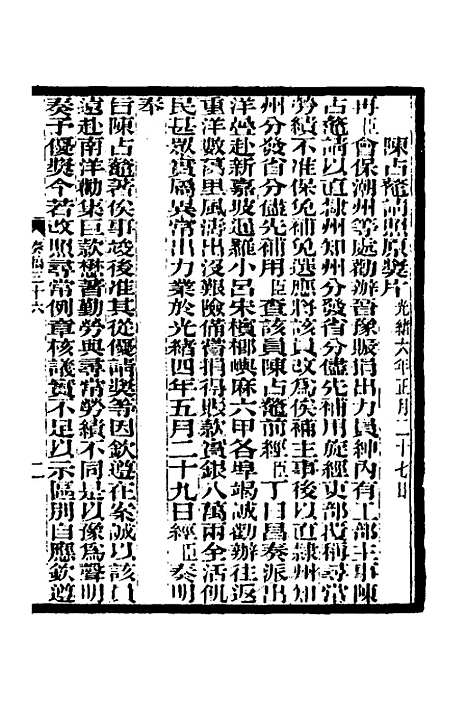 陳占鼇請照原獎片 光緒六年正月二十七日
再臣會保潮州等處勸辦晉豫賑捐出力員紳內有工部主事陳
占鼇請以直隸州知州分發省分儘先補用旋經吏部行稱尋常
勞績不准保免補免選應將該員改為俟補主事後以直隸州知
州分發省分儘先補用臣查該員陳占鼇前經臣丁日昌奏派出
洋遶赴新嘉坡暹羅小呂宋檳榔嶼麻六甲各埠竭誠勸辦往返
重洋數萬里風濤出沒艱險備嘗捐得賑款實銀八萬兩全活飢
民甚眾實屬異常出力業於光緒四年五月二十九日經臣奏明
奉
旨陳占鼇著俟事竣後准其從優請獎等因欽遵在案誠以該員
遠赴南洋勸集巨款懋著勤勞與尋常勞績不同是以豫為聲明
奏予優獎今若改照尋常例章核議實不足以示區別自應欽遵
奏稿三十六